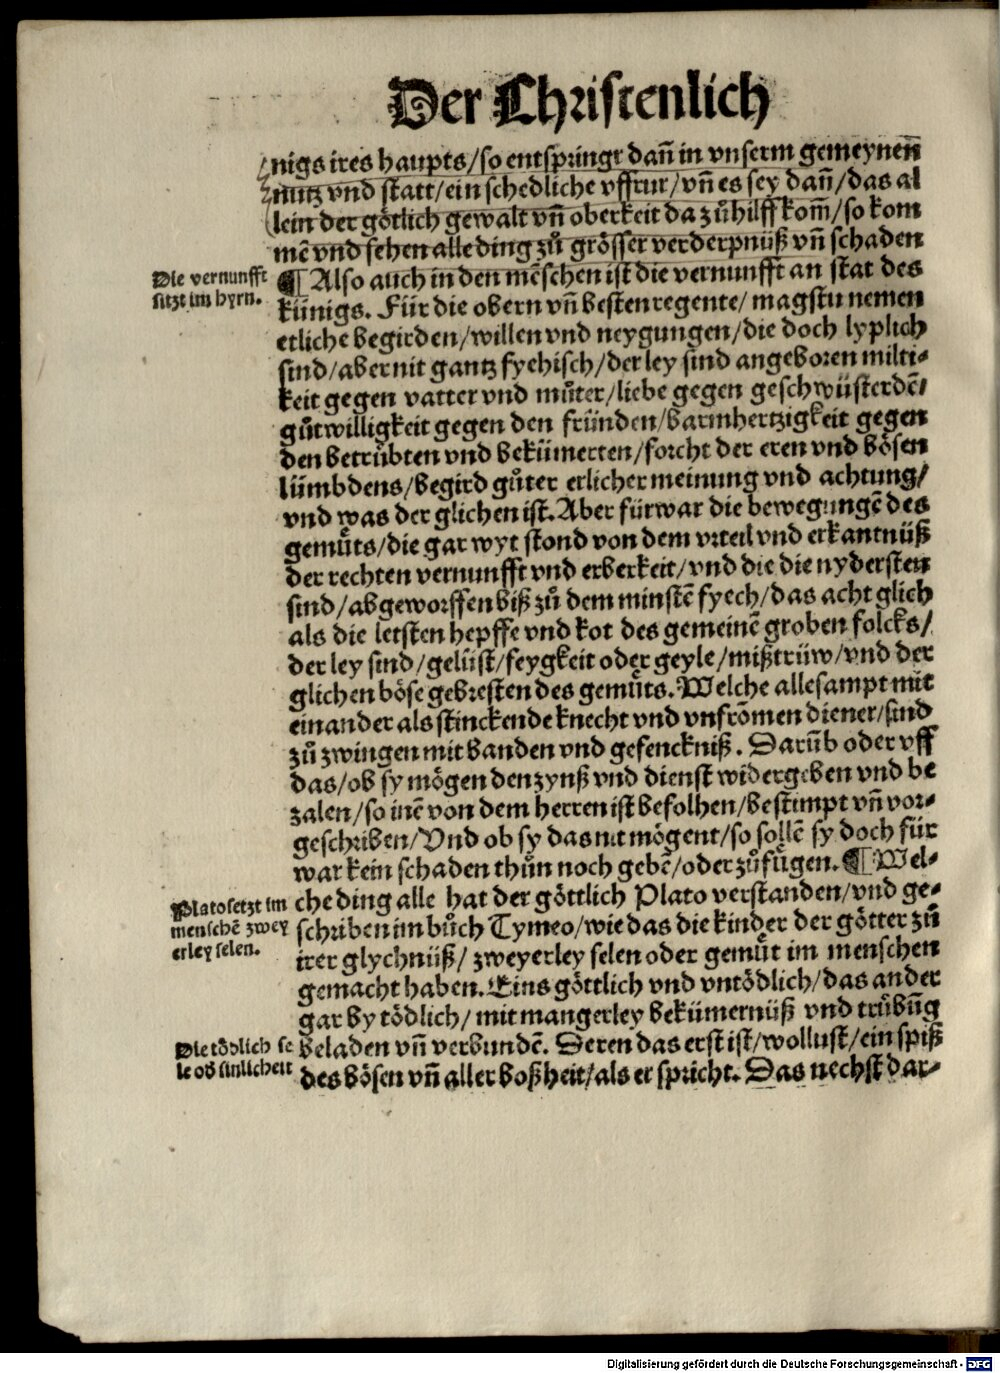 Der Christenlich
nigs ires haupts/so entspringt dañ in vnserm gemeynen
nutz vnd statt/ein schedliche vffrur/vñ es sey dañ/das al
lein der götlich gewalt vñ oberkeit da zů hilff kom̃/so kom
mẽ vnd sehen alle ding zů grösser verderpnüß vñ schaden
Die vernunfft
sitzt im hyrn.
¶ Also auch in den mẽschen ist die vernunfft an stat des
künigs. Für die obern vñ besten regente/magstu nemen
etliche begirden/willen vnd neygungen/die doch lyplich
sind/aber nit gantz fyehisch/der ley sind angeboren milti⸗
keit gegen vatter vnd můter/liebe gegen geschwüsterdẽ/
gůtwilligkeit gegen den fründen/barmhertzigkeit gegen
den betrübten vnd bekümerten/forcht der eren vnd bösen
lümbdens/begird gůter erlicher meinung vnd achtung/
vnd was der glichen ist. Aber fürwar die bewegungẽ des
gemůts/die gar wyt stond von dem vrteil vnd erkantnüß
der rechten vernunfft vnd erberkeit/vnd die die nydersten
sind/abgeworffen biß zů dem minstẽ fyech/das acht glich
als die letsten hepffe vnd kot des gemeinẽ groben folcks/
der ley sind/gelüst/feygkeit oder geyle/mißtrüw/vnd der
glichen böse gebresten des gemůts. Welche alle sampt mit
einander als stinckende knecht vnd vnfrõmen diener/sind
zů zwingen mit banden vnd gefenckniß. Darũb oder vff
das/ob sy mögen den zynß vnd dienst widergeben vnd be
zalen/so inẽ von dem herren ist befolhen/bestimpt vñ vor⸗
geschriben/Vnd ob sy das nit mögent/so sollẽ sy doch für
war kein schaden thůn noch gebẽ/oder zůfügen. ¶ Wel⸗
Plato setzt im
menschẽ zwey
erley selen.
che ding alle hat der göttlich Plato verstanden/vnd ge⸗
schriben im bůch Tymeo/wie das die kinder der götter zů
irer glychnüß/zweyerley selen oder gemůt im menschen
gemacht haben. Eins göttlich vnd vntödlich/das ander
gar by tödlich/mit mangerley bekümernüß vnd trübũg
Die tödlich se
le od sinlicheit
beladen vñ verbundẽ. Deren das erst ist/wollust/ein spiß
des bösen vñ aller boßheit/als er spricht. Das nechst dar⸗
Digitalisierung gefördert durch die Deutsche Forschungsgemeinschaft - DFG